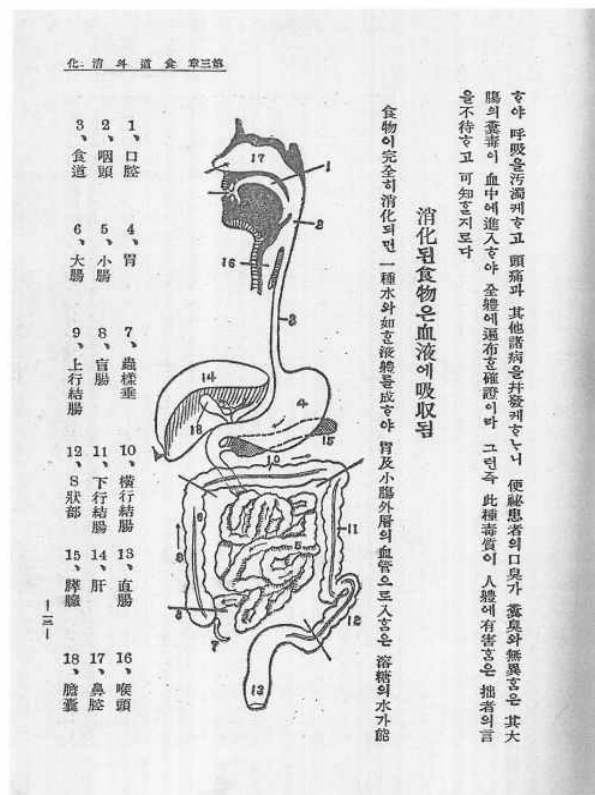 第三章 食道와 消化
ᄒᆞ야 呼吸을 汚濁케ᄒᆞ고 頭痛과 其他諸病을 幷發케ᄒᆞᄂᆞ니 便祕患者의 口臭가 糞臭와 無異ᄒᆞᆷ은 其大
腸의 糞毒이 血中에 進入ᄒᆞ야 全體에 遍布ᄒᆞᆫ 確證이라 그런즉 此種毒質이 人體에 有害ᄒᆞᆷ은 拙者의 言
을 不待ᄒᆞ고 可知ᄒᆞᆯ지로다
消化된 食物은 血液에 吸収됨
食物이 完全히 消化되면 一種水와 如ᄒᆞᆫ 液體를 成ᄒᆞ야 胃及小腸外層의 血管으로 入ᄒᆞᆷ은 溶糖의 水가 能
17
1
2
16
3
14
4
18
15
10
9
5
11
8
6
7
12
13
1、口腔
2、咽頭
3、食道
4、胃
5、小腸
6、大腸
7、蟲樣垂
8、盲腸
9、上行結腸
10、橫行結腸
11、下行結腸
12、S狀部
13、直腸
14、肝
15、膵臟
16、喉頭
17、鼻腔
18、膽囊